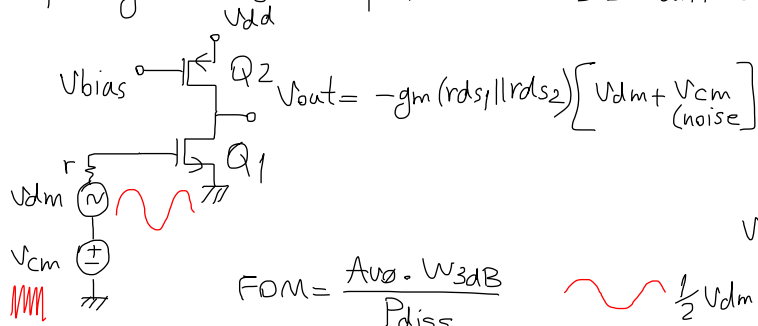 Vdd
Vbias
Q2
Vout = -gm (rds1 || rds2) [Vdm + Vcm
(noise]
Q1
r
Vdm
Vcm
FOM = Avo . W3dB
Pdiss
V
1/2 Vdm